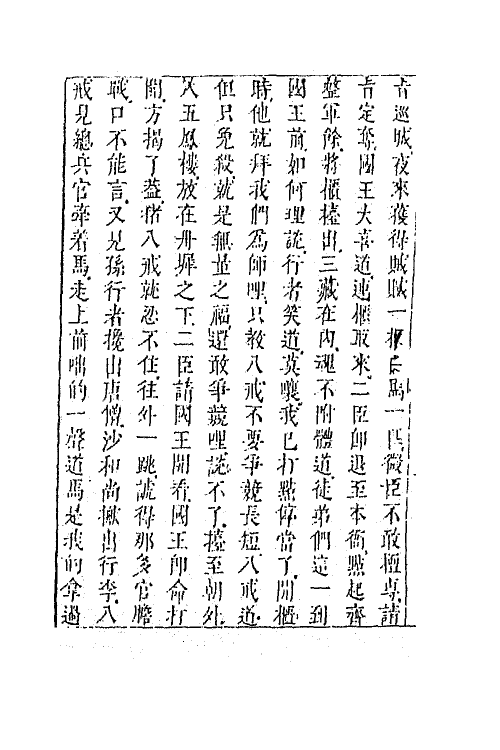 旨巡城夜來獲得賊贓一櫃白馬一匹微臣不敢擅專請
旨定奪國王大喜道連櫃取來二臣即退至本衙點起齊
整軍餘將櫃擡出三藏在內魂不附體道徒弟們這一到
國王前如何理說行者笑道莫嚷我已打點停當了開櫃
時他就拜我們為師哩只教八戒不要爭競長短八戒道
但只免殺就是無量之福還敢爭競哩說不了擡至朝外
入五鳳樓放在丹墀之下二臣請國王開看國王即命打
開方揭了蓋猪八戒就忍不住往外一跳諕得那多官膽
戰口不能言又見孫行者攙出唐僧沙和尚搬出行李八
戒見總兵官牽着馬走上前咄的一聲道馬是我的拿過